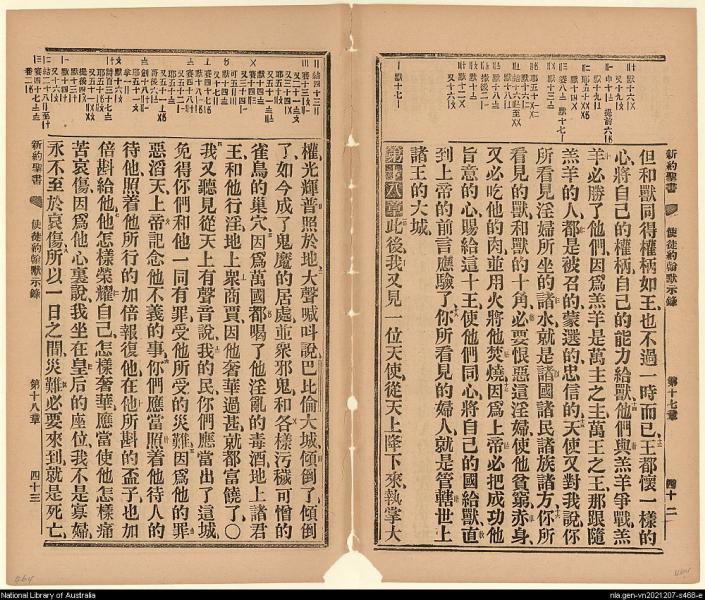 新約聖書　使徒約翰默示錄　第十七章　四十二
但和獸同得權柄如王也不過一時而已王都懷一樣的
心將自己的權柄自己的能力給獸他們與羔羊爭戰羔
羊必勝了他們因爲羔羊是萬主之主萬王之王那跟隨
羔羊的人都是被召的蒙選的忠信的天使又對我說你
所看見淫婦所坐的諸水就是諸國諸民諸族諸方你所
看見的獸和獸的十角必要恨惡這淫婦使他貧窮赤身
又必吃他的肉並用火將他焚燒因爲上帝必把成功他
旨意的心賜給這十王使他們同心將自己的國給獸直
到上帝的前言應驗了你所看見的婦人就是管轄世上
諸王的大城
第十八章此後我又見一位天使從天上降下來執掌大
權光輝普照於地大聲喊呌說巴比倫大城傾倒了傾倒
了如今成了鬼魔的居處並衆邪鬼和各樣污穢可憎的
雀鳥的巢穴因爲萬國都喝了他淫亂的毒酒地上諸君
王和他行淫地上衆商賈因他奢華過甚就都富饒了〇
我又聽見從天上有聲音說我的民你們應當出了這城
免得你們和他一同有罪受他所受的災難因爲他的罪
惡滔天上帝記念他不義的事你們應當照着他待人的
待他照着他所行的加倍報復他在他所斟的盃子也加
倍斟給他他怎樣榮耀自己怎樣奢華應當使他怎樣痛
苦哀傷因爲他心裏說我坐在皇后的座位我不是寡婦
永不至於哀傷所以一日之間災難必要來到就是死亡
新約聖書　使徒約翰默示錄　第十八章　四十三
National Library of Australia
nla.gen-vn2021207-s468-e